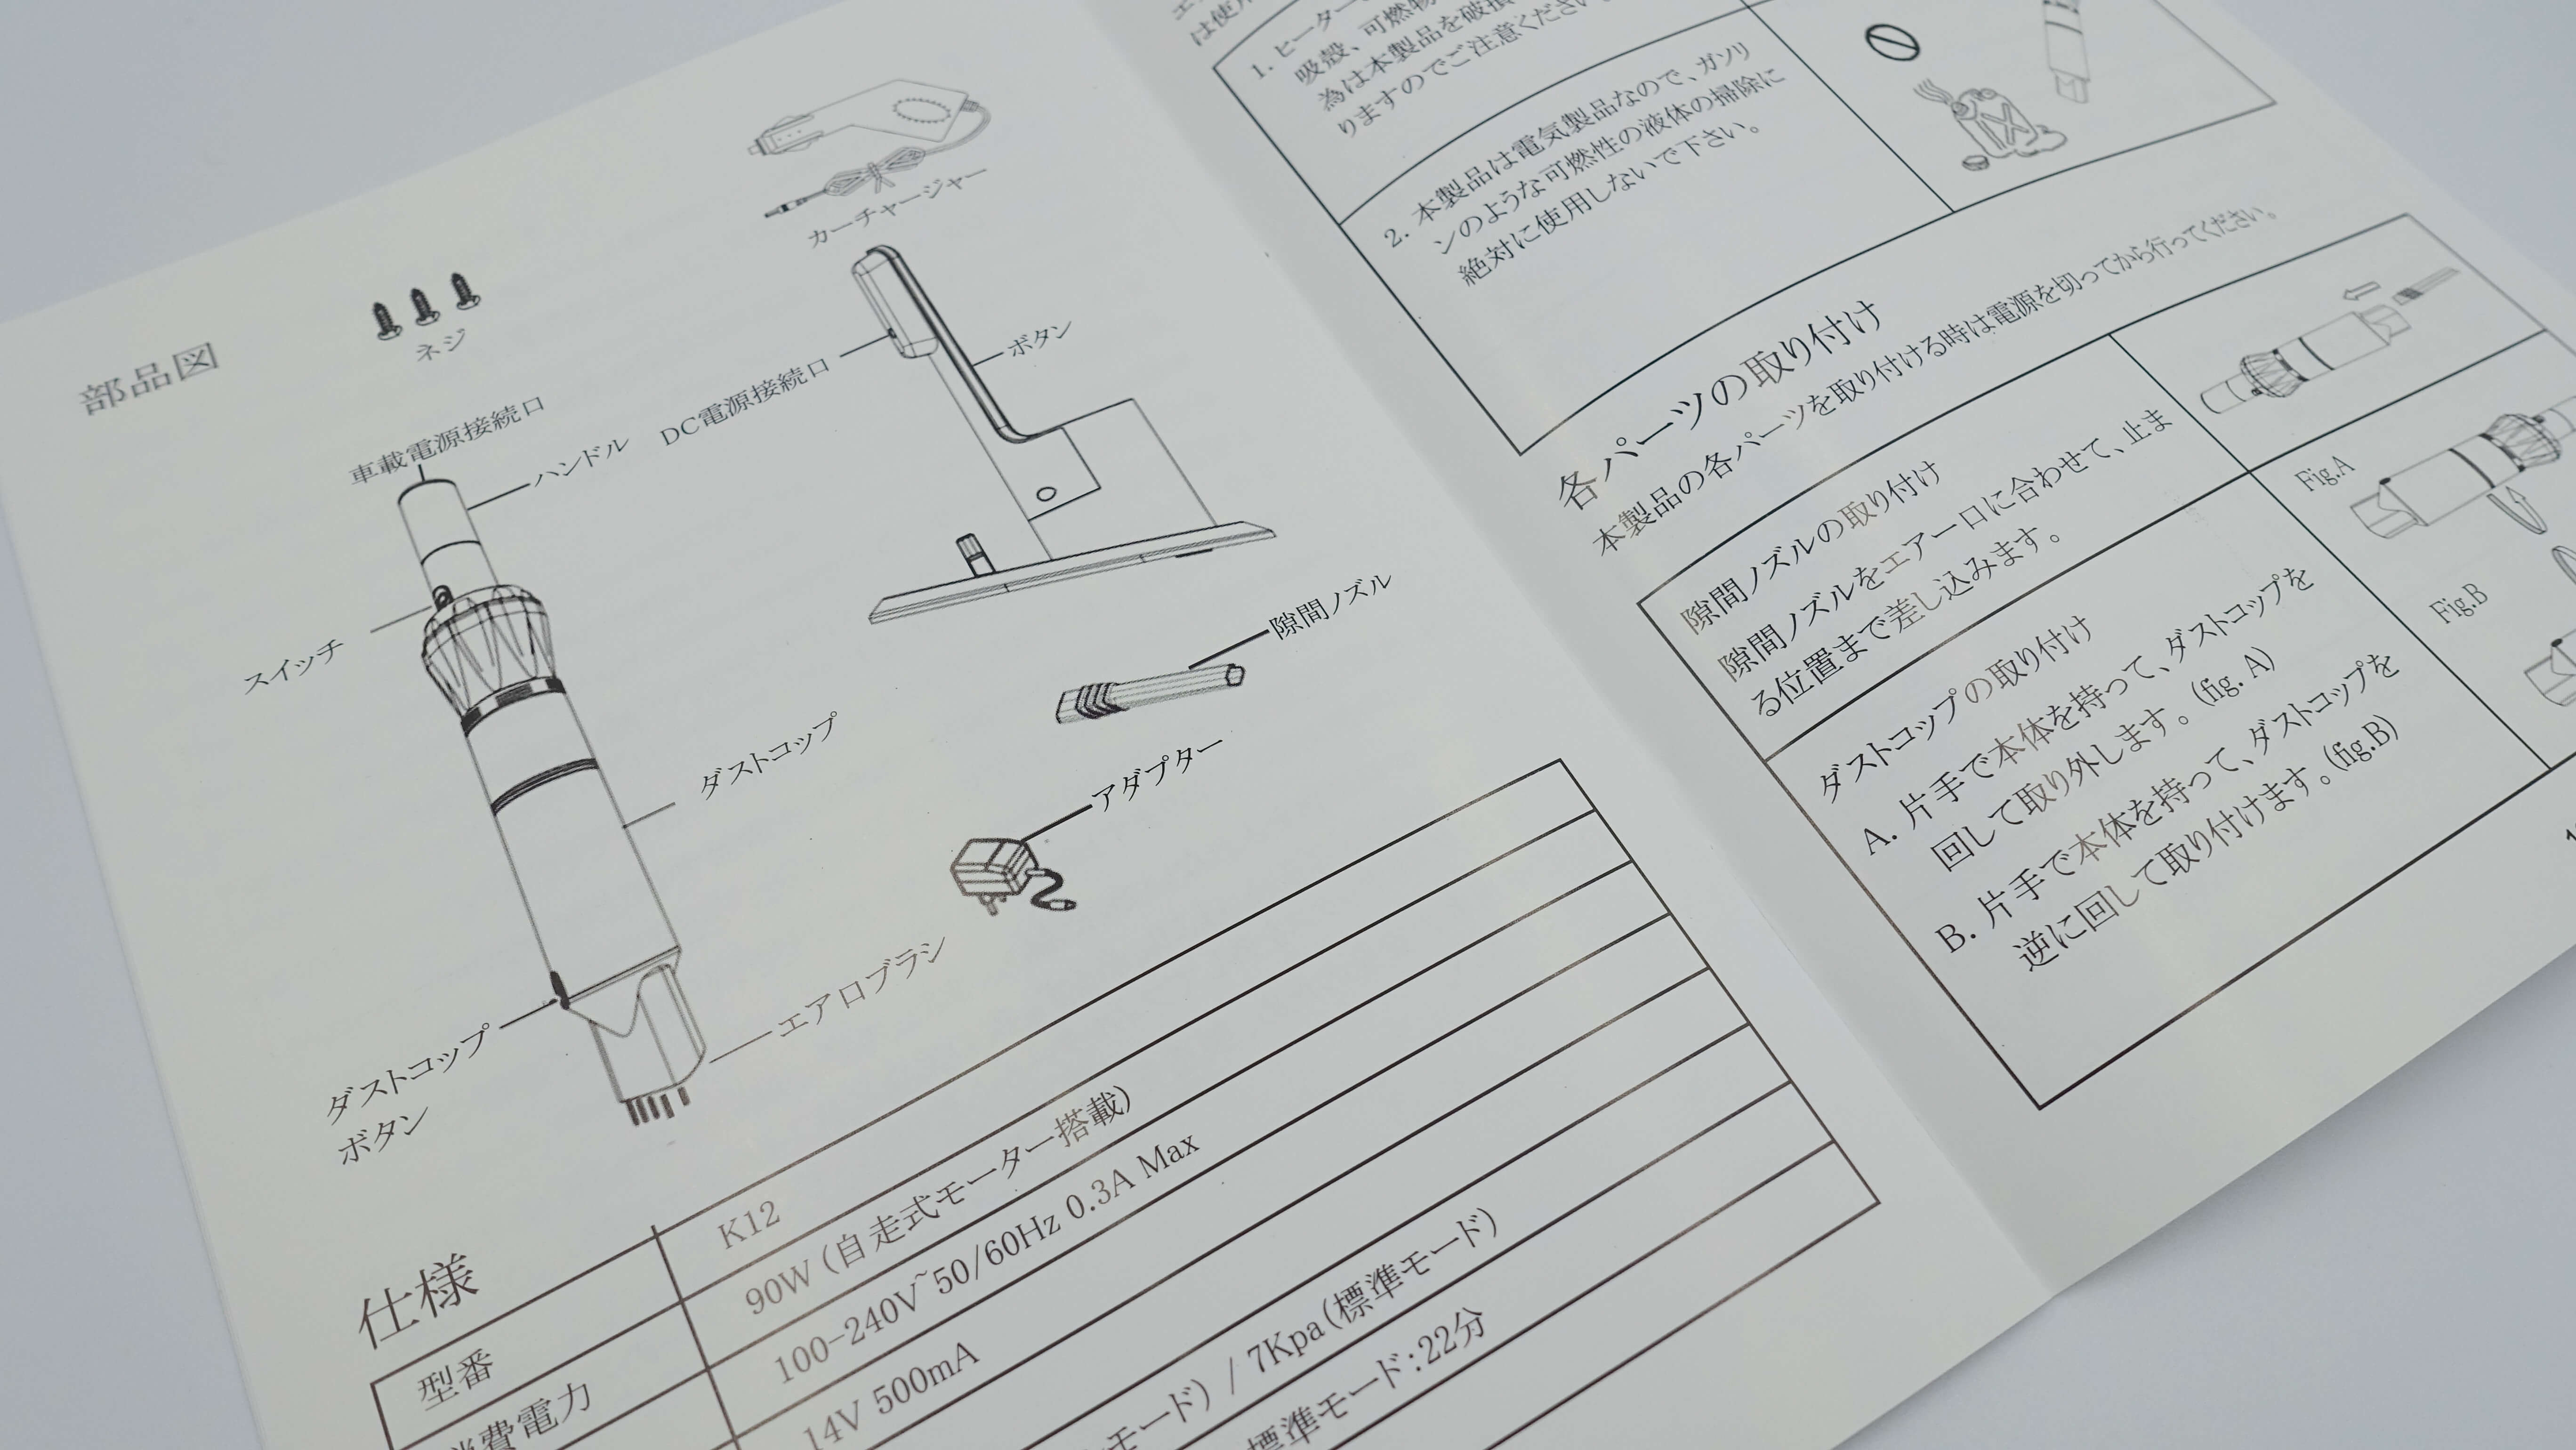 部品図
ネジ
カーチャージャー
車載電源接続口
ハンドル
DC電源接続口
ボタン
スイッチ
隙間ノズル
ダストコップ
アダプター
エアロブラシ
ダストコップ
ボタン
仕様
型番 K12
消費電力 90W（自走式モーター搭載）
100-240V~50/60Hz 0.3A Max
14V 500mA
モード）/ 7Kpa（標準モード）
標準モード：22分
は使用
1. ヒーター
吸殻、可燃物
為は本製品を破損
りますのでご注意ください
2. 本製品は電気製品なので、ガソリ
ンのような可燃性の液体の掃除に
絶対に使用しないで下さい。
各パーツの取り付け
本製品の各パーツを取り付ける時は電源を切ってから行ってください。
隙間ノズルの取り付け
隙間ノズルをエアー口に合わせて、止ま
る位置まで差し込みます。
ダストコップの取り付け
A. 片手で本体を持って、ダストコップを
回して取り外します。(fig. A)
B. 片手で本体を持って、ダストコップを
逆に回して取り付けます。(fig.B)
Fig.A
Fig.B